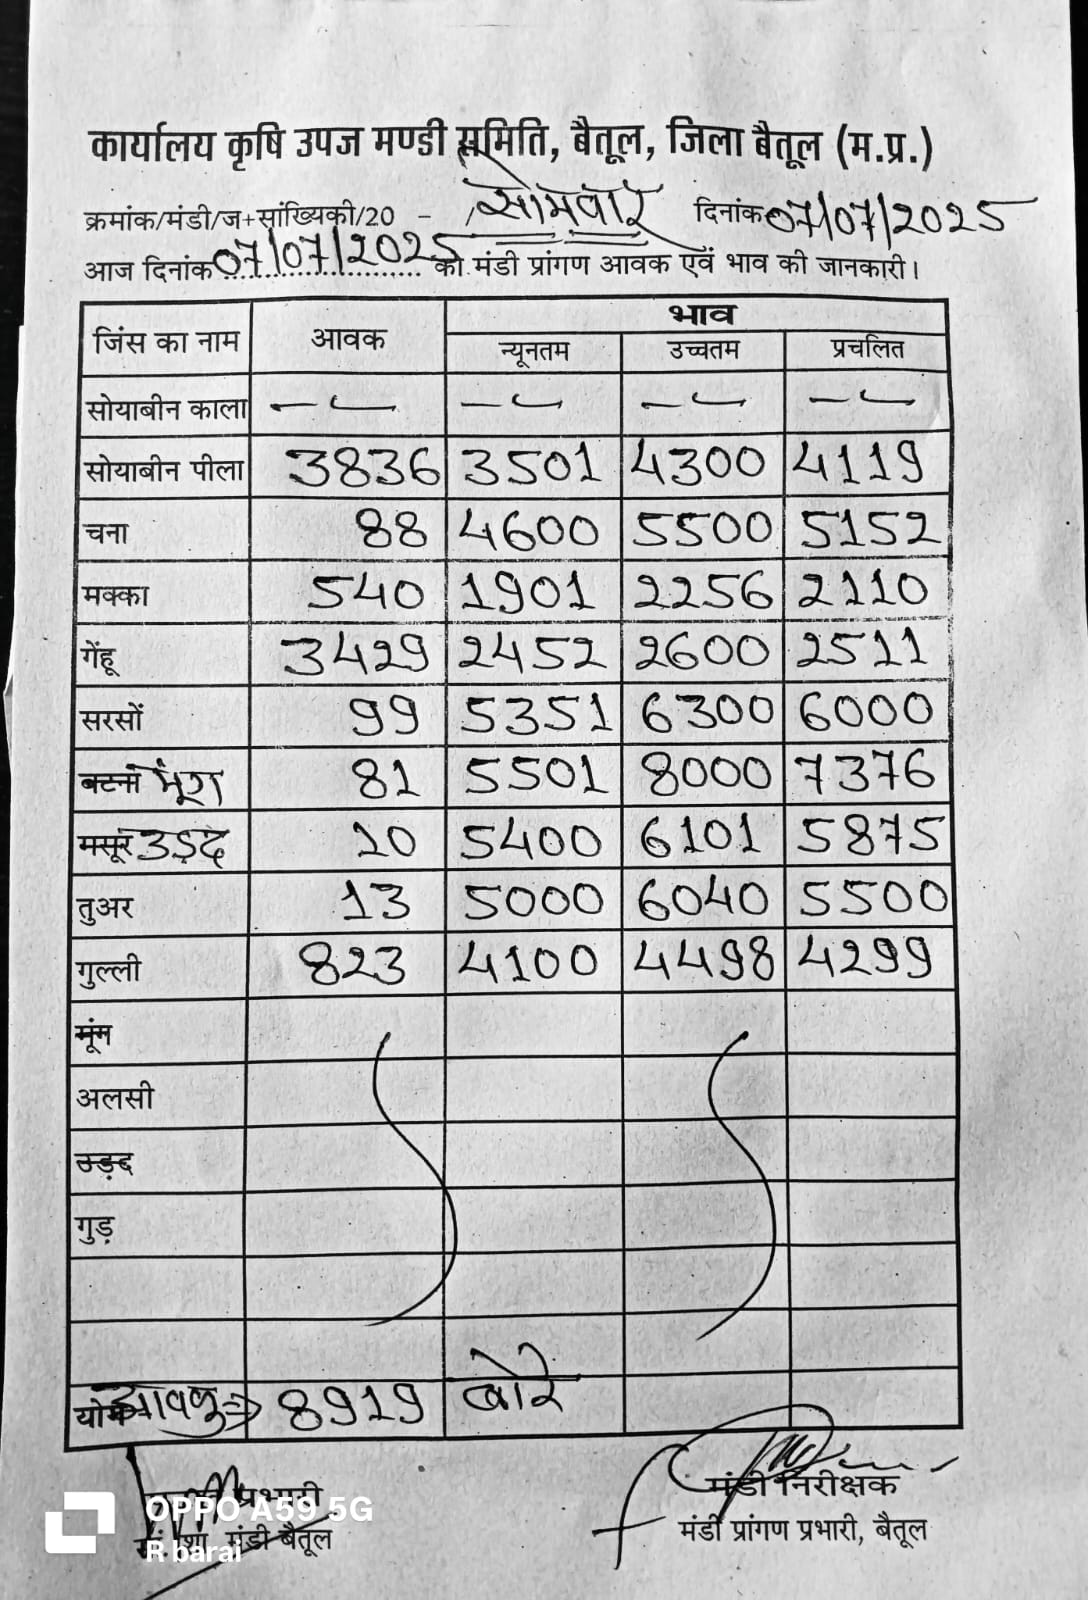 कार्यालय कृषि उपज मण्डी समिति, बैतूल, जिला बैतूल (म.प्र.)
क्रमांक/मंडी/ज+सांख्यिकी/20 - / सोमवार दिनांक 07/07/2025
आज दिनांक 07/07/2025 को मंडी प्रांगण आवक एवं भाव की जानकारी।
जिंस का नाम आवक भाव
न्यूनतम उच्चतम प्रचलित
सोयाबीन काला - - - - - - - -
सोयाबीन पीला 3836 3501 4300 4119
चना 88 4600 5500 5152
मक्का 540 1901 2256 2110
गेंहू 3429 2452 2600 2511
सरसों 99 5351 6300 6000
बटना मूंग 81 5501 8000 7376
मसूर उड़द 10 5400 6101 5875
तुअर 13 5000 6040 5500
गुल्ली 823 4100 4498 4299
मूंग
अलसी
उड़द
गुड़
योग आवक => 8919 बोरे
प्रभारी मंडी निरीक्षक
मंडी बैतूल मंडी प्रांगण प्रभारी, बैतूल
OPPO A59 5G
R barai